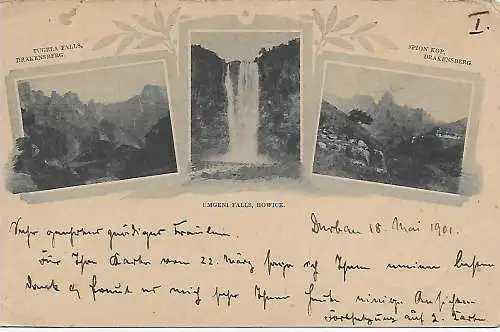 TUGELA FALLS,
DRAKENSBERG.
I.
SPION KOP,
DRAKENSBERG.
UMGENI FALLS, HOWICK.
Durban 18. Mai 1901.
Sehr geehrtes gnädiges Fräulein.
Für Ihre Karte vom 22. März sage ich Ihnen meinen besten
Dank es freut mich sehr Ihnen heute einige Ansichten
Fortsetzung auf 2. Karte